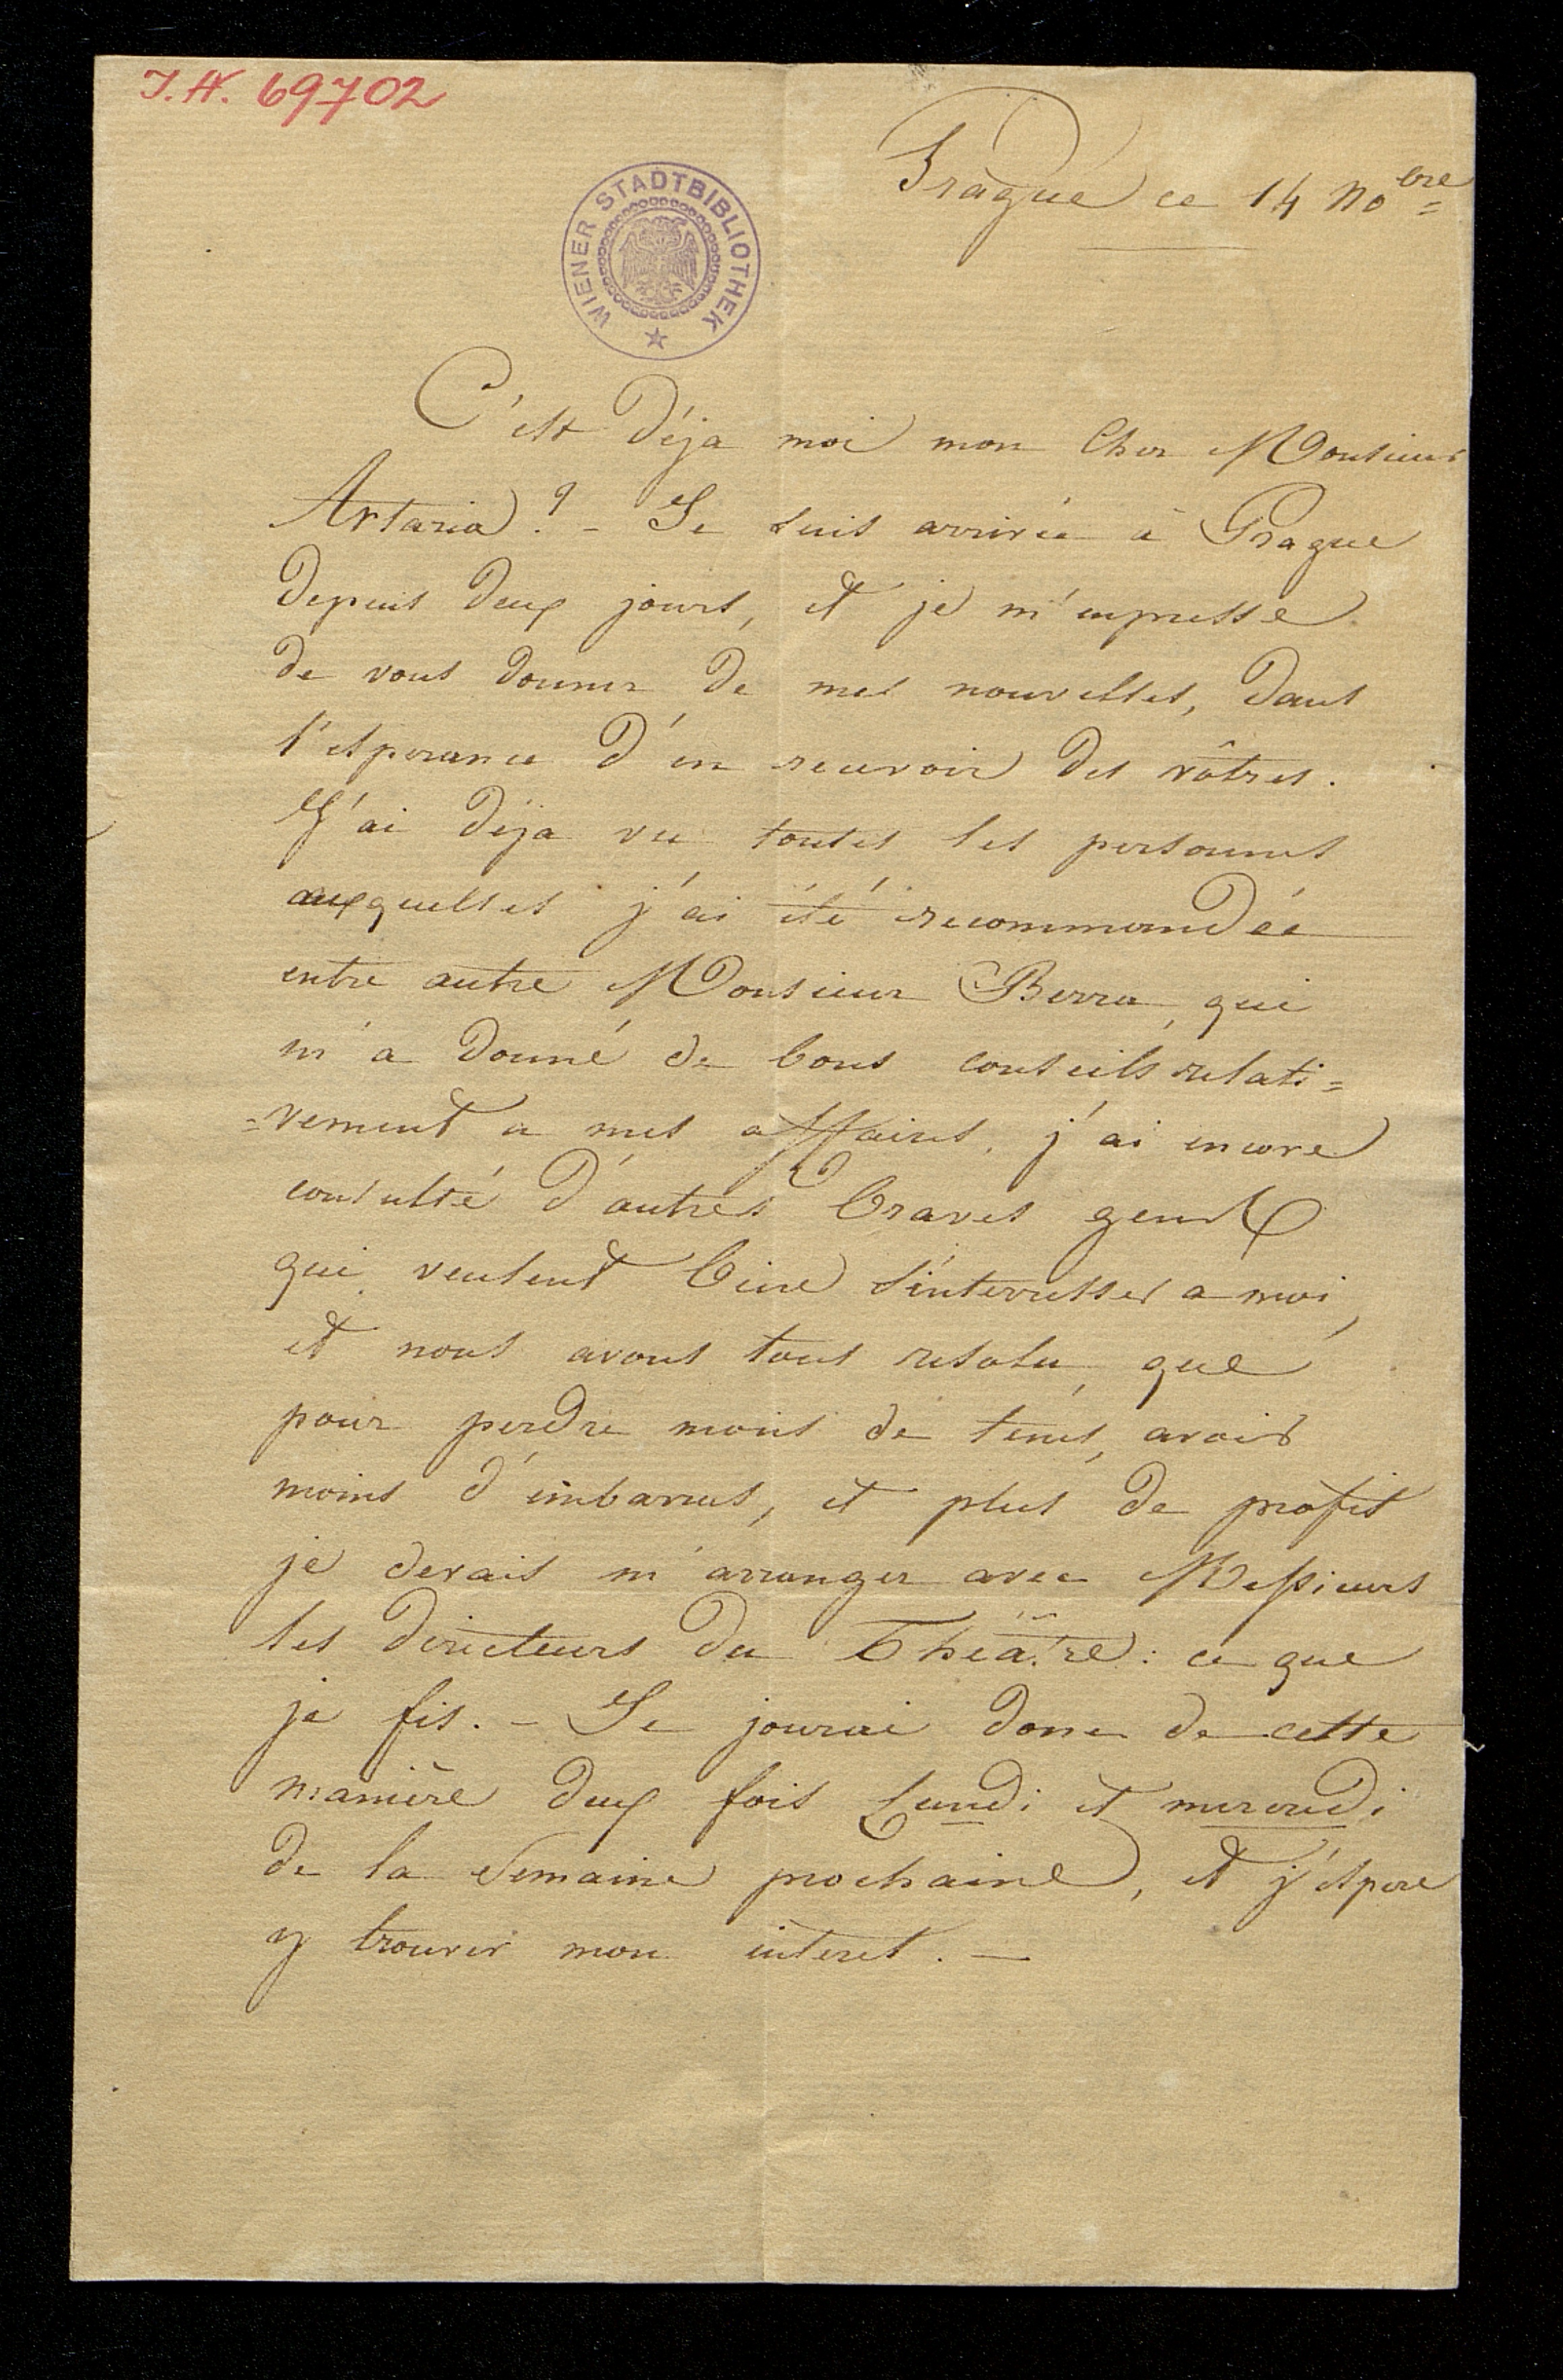 J.N. 69702
WIENER STADTBIBLIOTHEK
Prague ce 14 No^bre=
C'est déja moi mon Cher Monsieur
Artaria? – Je suis arrivée à Prague
depuis deux jours, et je m'empresse
de vous donner de mes nouvelles, dans
l'esperance d'en recevoir des vôtres.
J'ai déja vu toutes les personnes
auxquelles j'ai été recommandée
entre autre Monsieur Berra, qui
m'a donné de bons conseils relati=
=vement a mes affaires. j'ai encore
consulté d'autres braves gens
qui veulent bien s'interresser a moi,
et nous avons tous resolu, que
pour perdre moins de tems, avoir
moins d'embarras, et plus de profit
je devais m'arranger avec Messieurs
les directeurs du Théâtre: ce que
je fis. – Je jourai donc de cette
manière deux fois Lundi et mercredi
de la semaine prochaine, et j'espere
y trouver mon interet. –